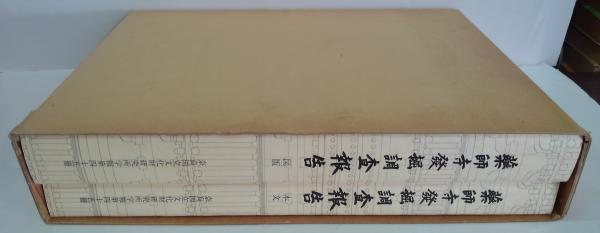 藥師寺發掘調査報告
図版
奈良国立文化財研究所学報第四十五冊
藥師寺發掘調査報告
本文
奈良国立文化財研究所学報第四十五冊